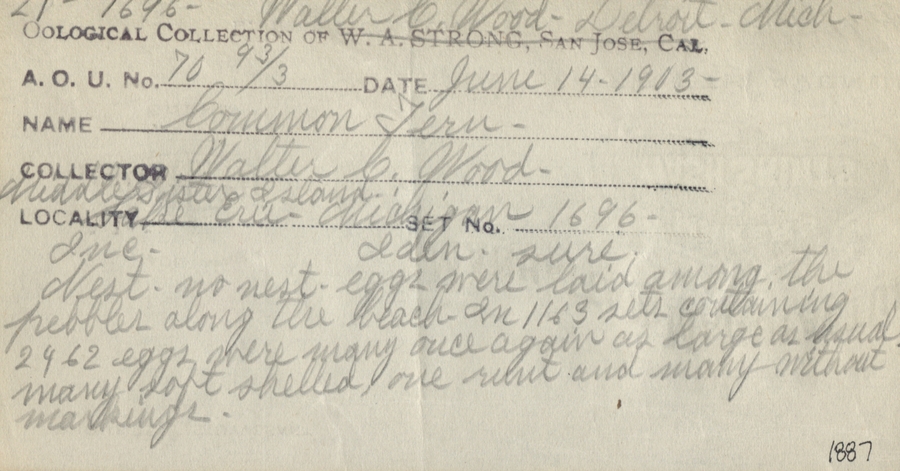 21- 1696- Walter C. Wood- Detroit- Mich-
OOLOGICAL COLLECTION OF W. A. STRONG, SAN JOSE, CAL.
A. O. U. No. 70 93/3 DATE June 14-1903-
NAME Common Tern-
COLLECTOR Walter C. Wood-
Middle Sister Island-
LOCALITY Lake Erie- Michigan SET No. 1696-
Inc- Iden- sure.
Nest- no nest- eggs were laid among the
pebbles along the beach- In 1163 sets containing
2462 eggs were many once again as large as usual,
many soft shelled, one runt and many without
markings-
1887